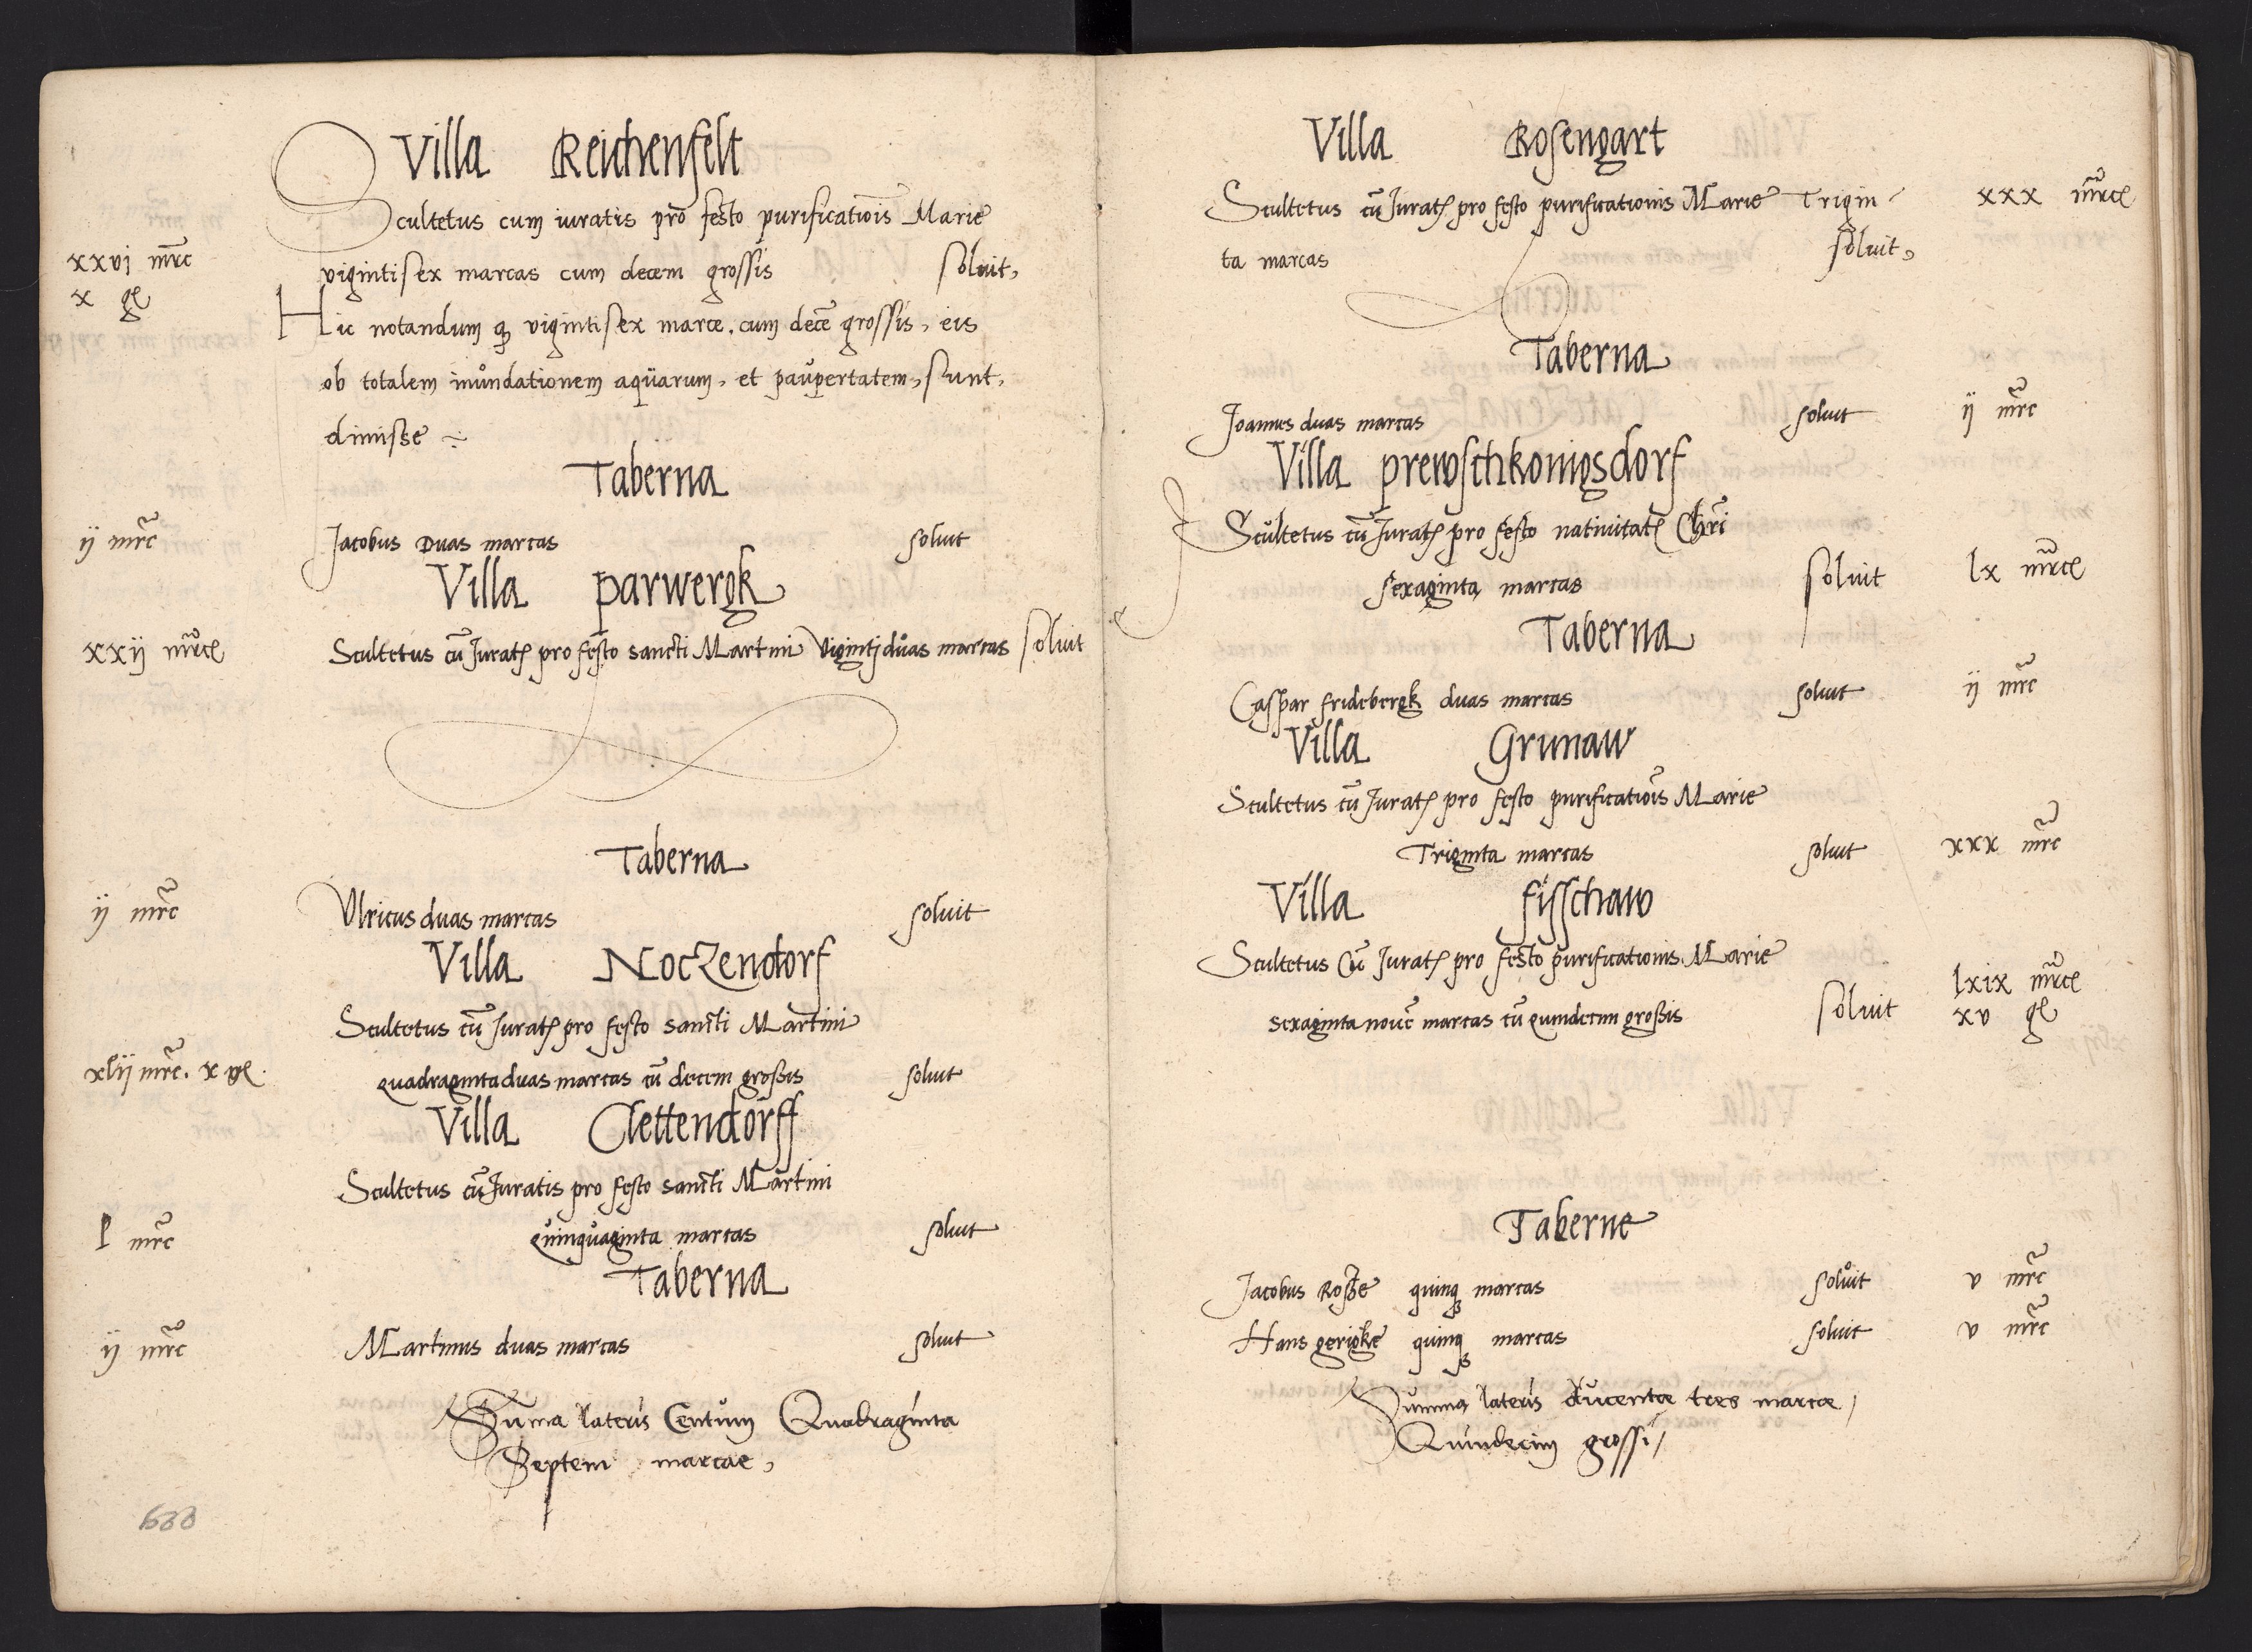 Villa Reichenfelt
Scultetus cum iuratis pro festo purificatiõis Marie
xxvj mrc̃ vigintisex marcas cum decem grossis soluit,
x gℓ
Hic notandum ꝙ vigintisex marce. cum decẽ grossis, eis
ob totalem inůndationem aqüarum, et paůpertatem, sunt,
dimisse ÷
Taberna
ij mrc̃ Jacobus Duas marcas soluit
Villa parwergk
xxij mrcℓ Scultetus cũ Juratꝭ pro festo sancti Martini Vigintj důas marcas soluit
Taberna
ij mrc̃ Vlricus duas marcas soluit
Villa Noczendorf
Scultetus cũ Juratꝭ pro festo sancti Martini
xlij mrc̃. x gℓ. quadragintaduas marcas cũ decem grossis soluit
Villa Clettendorff
Scultetus cũ Juratis pro festo sancti Martini
l mrc̃ quinqůaginta marcas soluit
Taberna
ij mrc̃ Martinus duas marcas soluit
Sum̃a lateris Centům Quadraginta
Septem marcae,
Villa Rosengart
Scultetus cũ Juratꝭ pro festo purificationis Marie Trigin- xxx mrcℓ
ta marcas soluit,
Taberna
Joannes duas marcas soluit ij mrc̃
Villa prewschkonigsdorf
Scůltetus cũ Juratꝭ pro festo natiuitatꝭ Chrĩ
sexaginta marcas soluit lx mrcℓ
Taberna
Caspar fridebergk duas marcas soluit ij mrc̃
Villa Grunaw
Scultetus cũ Juratꝭ pro festo purificatiõis Marie
Triginta marcas soluit xxx mrc̃
Villa fisschaw
Scultetus Cũ Juratꝭ pro festo purificationis Marie
lxix mrcℓ
sexaginta nouẽ marcas cũ quindecim grossis soluit xv gℓ
Taberne
Jacobus Rosße quinqꝫ marcas solůit v mrc̃
Hans gerigke quinqꝫ marcas soluit v mrc̃
Summa lateris ducentae tres marcae /
Quindecim grossi /